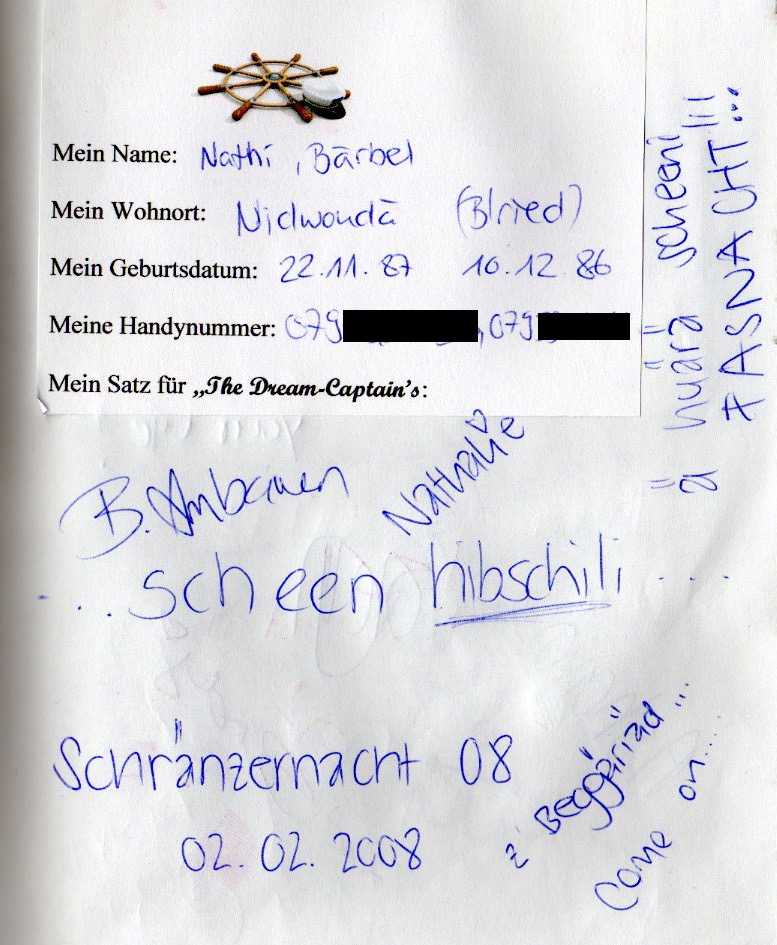 Mein Name: Nathi, Bärbel
Mein Wohnort: Nidwoudä (Blried)
Mein Geburtsdatum: 22.11.87 10.12.86
Meine Handynummer: 079 , 079
Mein Satz für „The Dream-Captain's:
ä huärä scheeni
FASNACHT!!!...
Nathalie
...scheen hibschili....
Schränzernacht 08
02.02.2008
z Beggäriäd...
Come on....